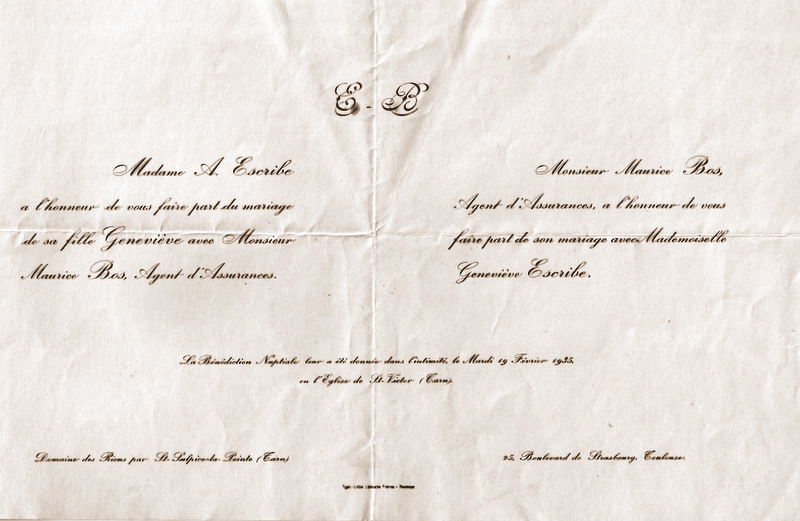 E - B
Madame A. Escribe
a l'honneur de vous faire part du mariage
de sa fille Geneviève avec Monsieur
Maurice Bos, Agent d'Assurances.
Monsieur Maurice Bos,
Agent d'Assurances, a l'honneur de vous
faire part de son mariage avec Mademoiselle
Geneviève Escribe.
La Bénédiction Nuptiale leur a été donnée dans l'intimité, le Mardi 19 Février 1935,
en l'Eglise de St-Victor (Tarn).
Domaine des Rious par St-Sulpice-la-Pointe (Tarn)
25, Boulevard de Strasbourg, Toulouse.
Typo-Litho Frères. - Toulouse